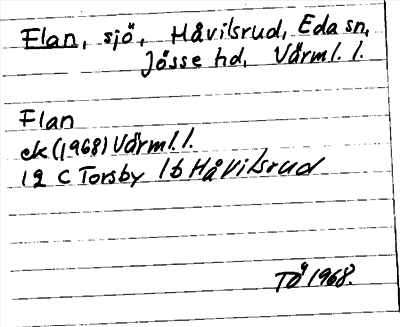 Flan, sjö, Håvilsrud, Eda sn,
Jösse hd, Värml. l.
Flan
ek (1968) Värml. l.
12 C Torsby 1b Håvilsrud
TÅ 1968.